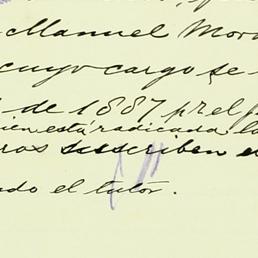 Manuel Mor
cuyo cargo se
de 1887 pr el j
ien está radicada la
ros suscriben e
do el tutor.